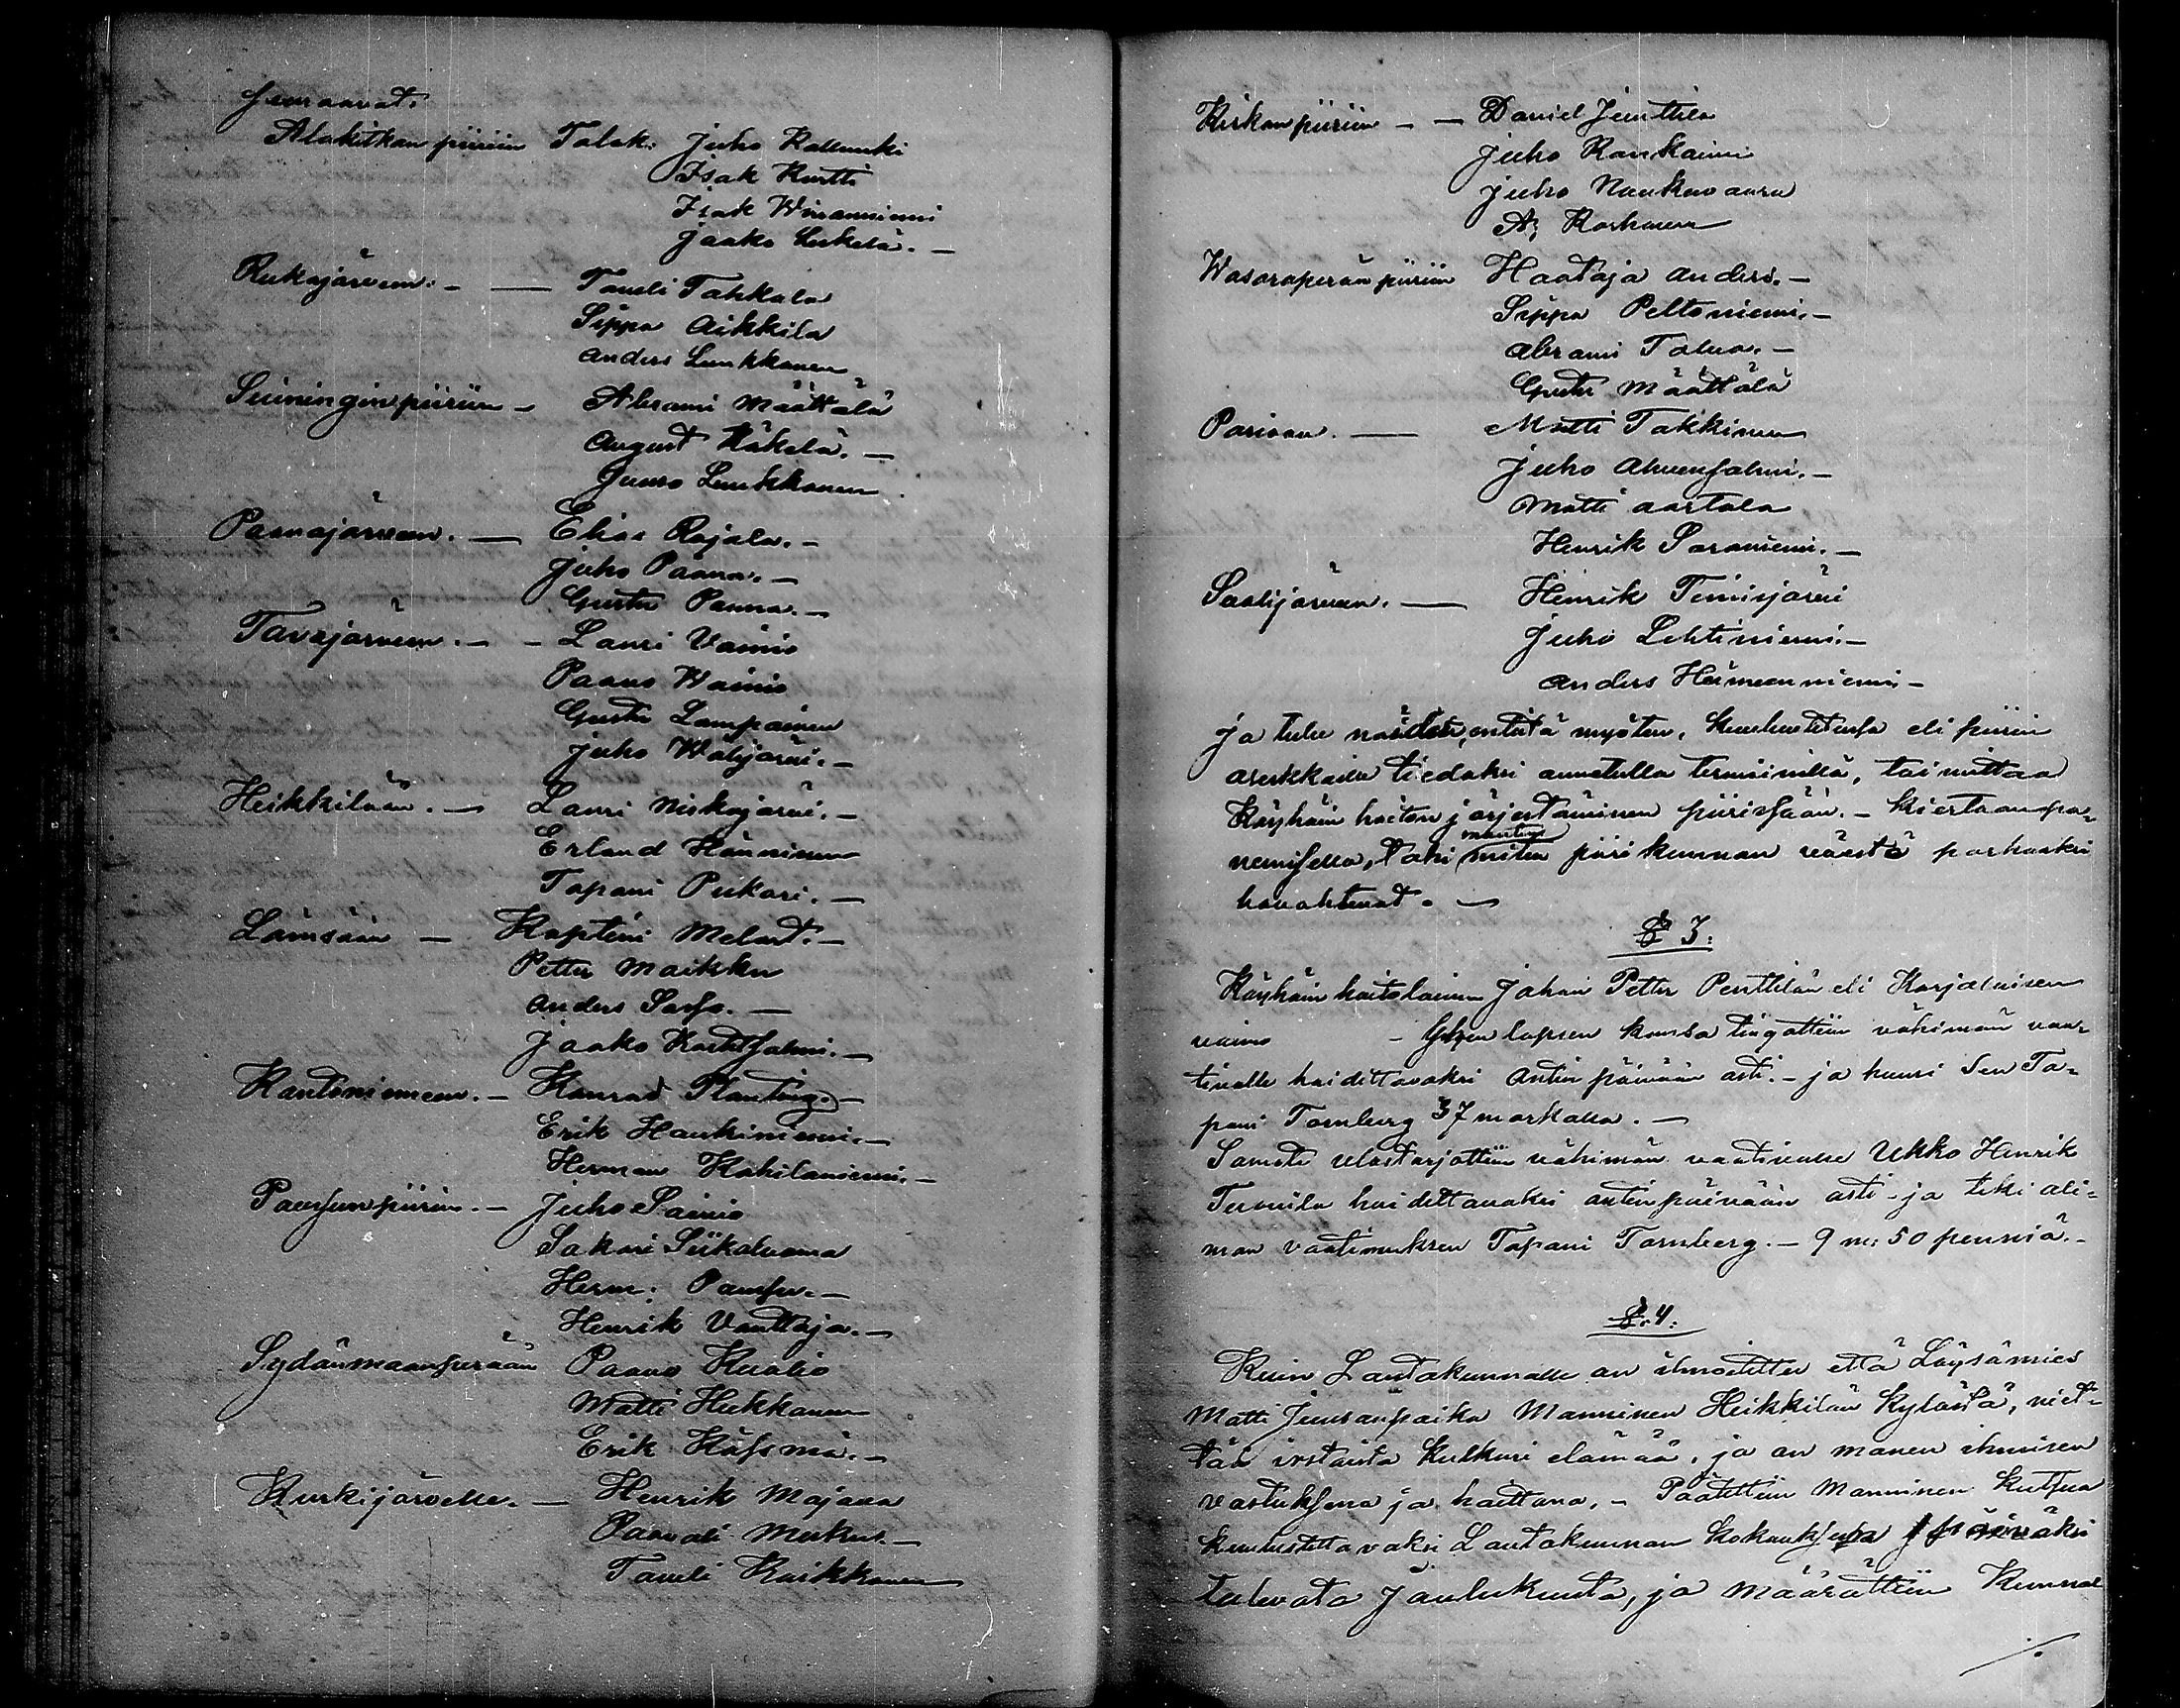 seuraavat:
Alakitkan piiriin Talok: Juho Kallunki
Isak Kurtti
Isak Wiiranniemi
Jaako Lukela. —
Rukajärveen. — — Taneli Tahkola
Sippa Aikkila
Anders Lunkkonen
Suiningin piiriin — Abrami Määttälä
August Käkelä. —
Junno Lunkkonen
Paanajärveen. — Elias Rajala. —
Juho Paana. —
Gusta Paana. —
Tavajärveen. — — Lauri Vainio
Paavo Wainio
Gusta Lampainen
Juho Wälijärvi. —
Heikkilään. — Lauri Niskajärvi. —
Erland Hänninen
Tapani Pukari. —
Lämsään — Kapteni Melart. —
Petter Maikku
Anders Sarfs. —
Jaako Kortesalmi. —
Kantoniemeen. — Konrad Planting —
Erik Haukiniemi. —
Herman Kahilaniemi. —
Juho Sainio
Sakari Siikaluoma
Herm: —
Henrik Vanttaja. —
Sydänmaanperään Paavo Kuolio
Matti Hukkanen
Erik Käfsmä. —
Kurkijärvelle. — Henrik Majava
Paavali Mukus. —
Taneli Kaikkonen
Kirkon piiriin — — Daniel Junttila
Juho Karikainen
Juho Naukuvaara
A; Korhonen
Wasaraperän piiriin Haataja Anders. —
Sippa Peltoniemi. —
Abrami Talua. —
Gusta Määttälä
Posioon. — Matti Takkinen
Juho Ahvensalmi. —
Matti Aartola
Henrik Saraniemi. —
Suolijärveen. — Henrik Timisjärvi
Juho Lehtiniemi. —
Anders Heimeenniemi —
ja tulee näiden, myöten, Kuulutetussa eli piirin
asukkaille tiedoksi annetulla termiinillä, toimittaa
Käyhäin hoidon järjestäminen piirissään. — Kiertaanpa-
nemisella, tahi miten piirikunnan väestä parhaaksi
havahtuvat. —
§ 3.
Käyhäin hoitolainen Johan Petter Penttilän eli Karjalaisen
vaimo — lapsen kansa tingattiin vähimän vaa-
tivalle hoidettavaksi Antin päivään asti. — ja huusi sen Ta-
pani Tornberg 37 markalla. —
Samate ulostarjottiin vähimän vaativalle Ukko Henrik
Termila hoidettavaksi antinpäivään asti — ja teki ali-
man vaatimuksen Tapani Tornberg. — 9 m: 50 penniä. —
§. 4.
Kuin Lautakunnalle on ilmoitettu että Löysämies
Matti Juusonpoika Manninen Heikkilän Kylästä, viet-
tää irstaista Kulkuri elämää, ja on monen ihmisen
vastuksena ja haittana. — Päätettiin Manninen Kutsua
kuulustettavaksi Lautakunnan kokoukseen päiväksi
tulevata Joulukuuta, ja määrättiin Kunnal